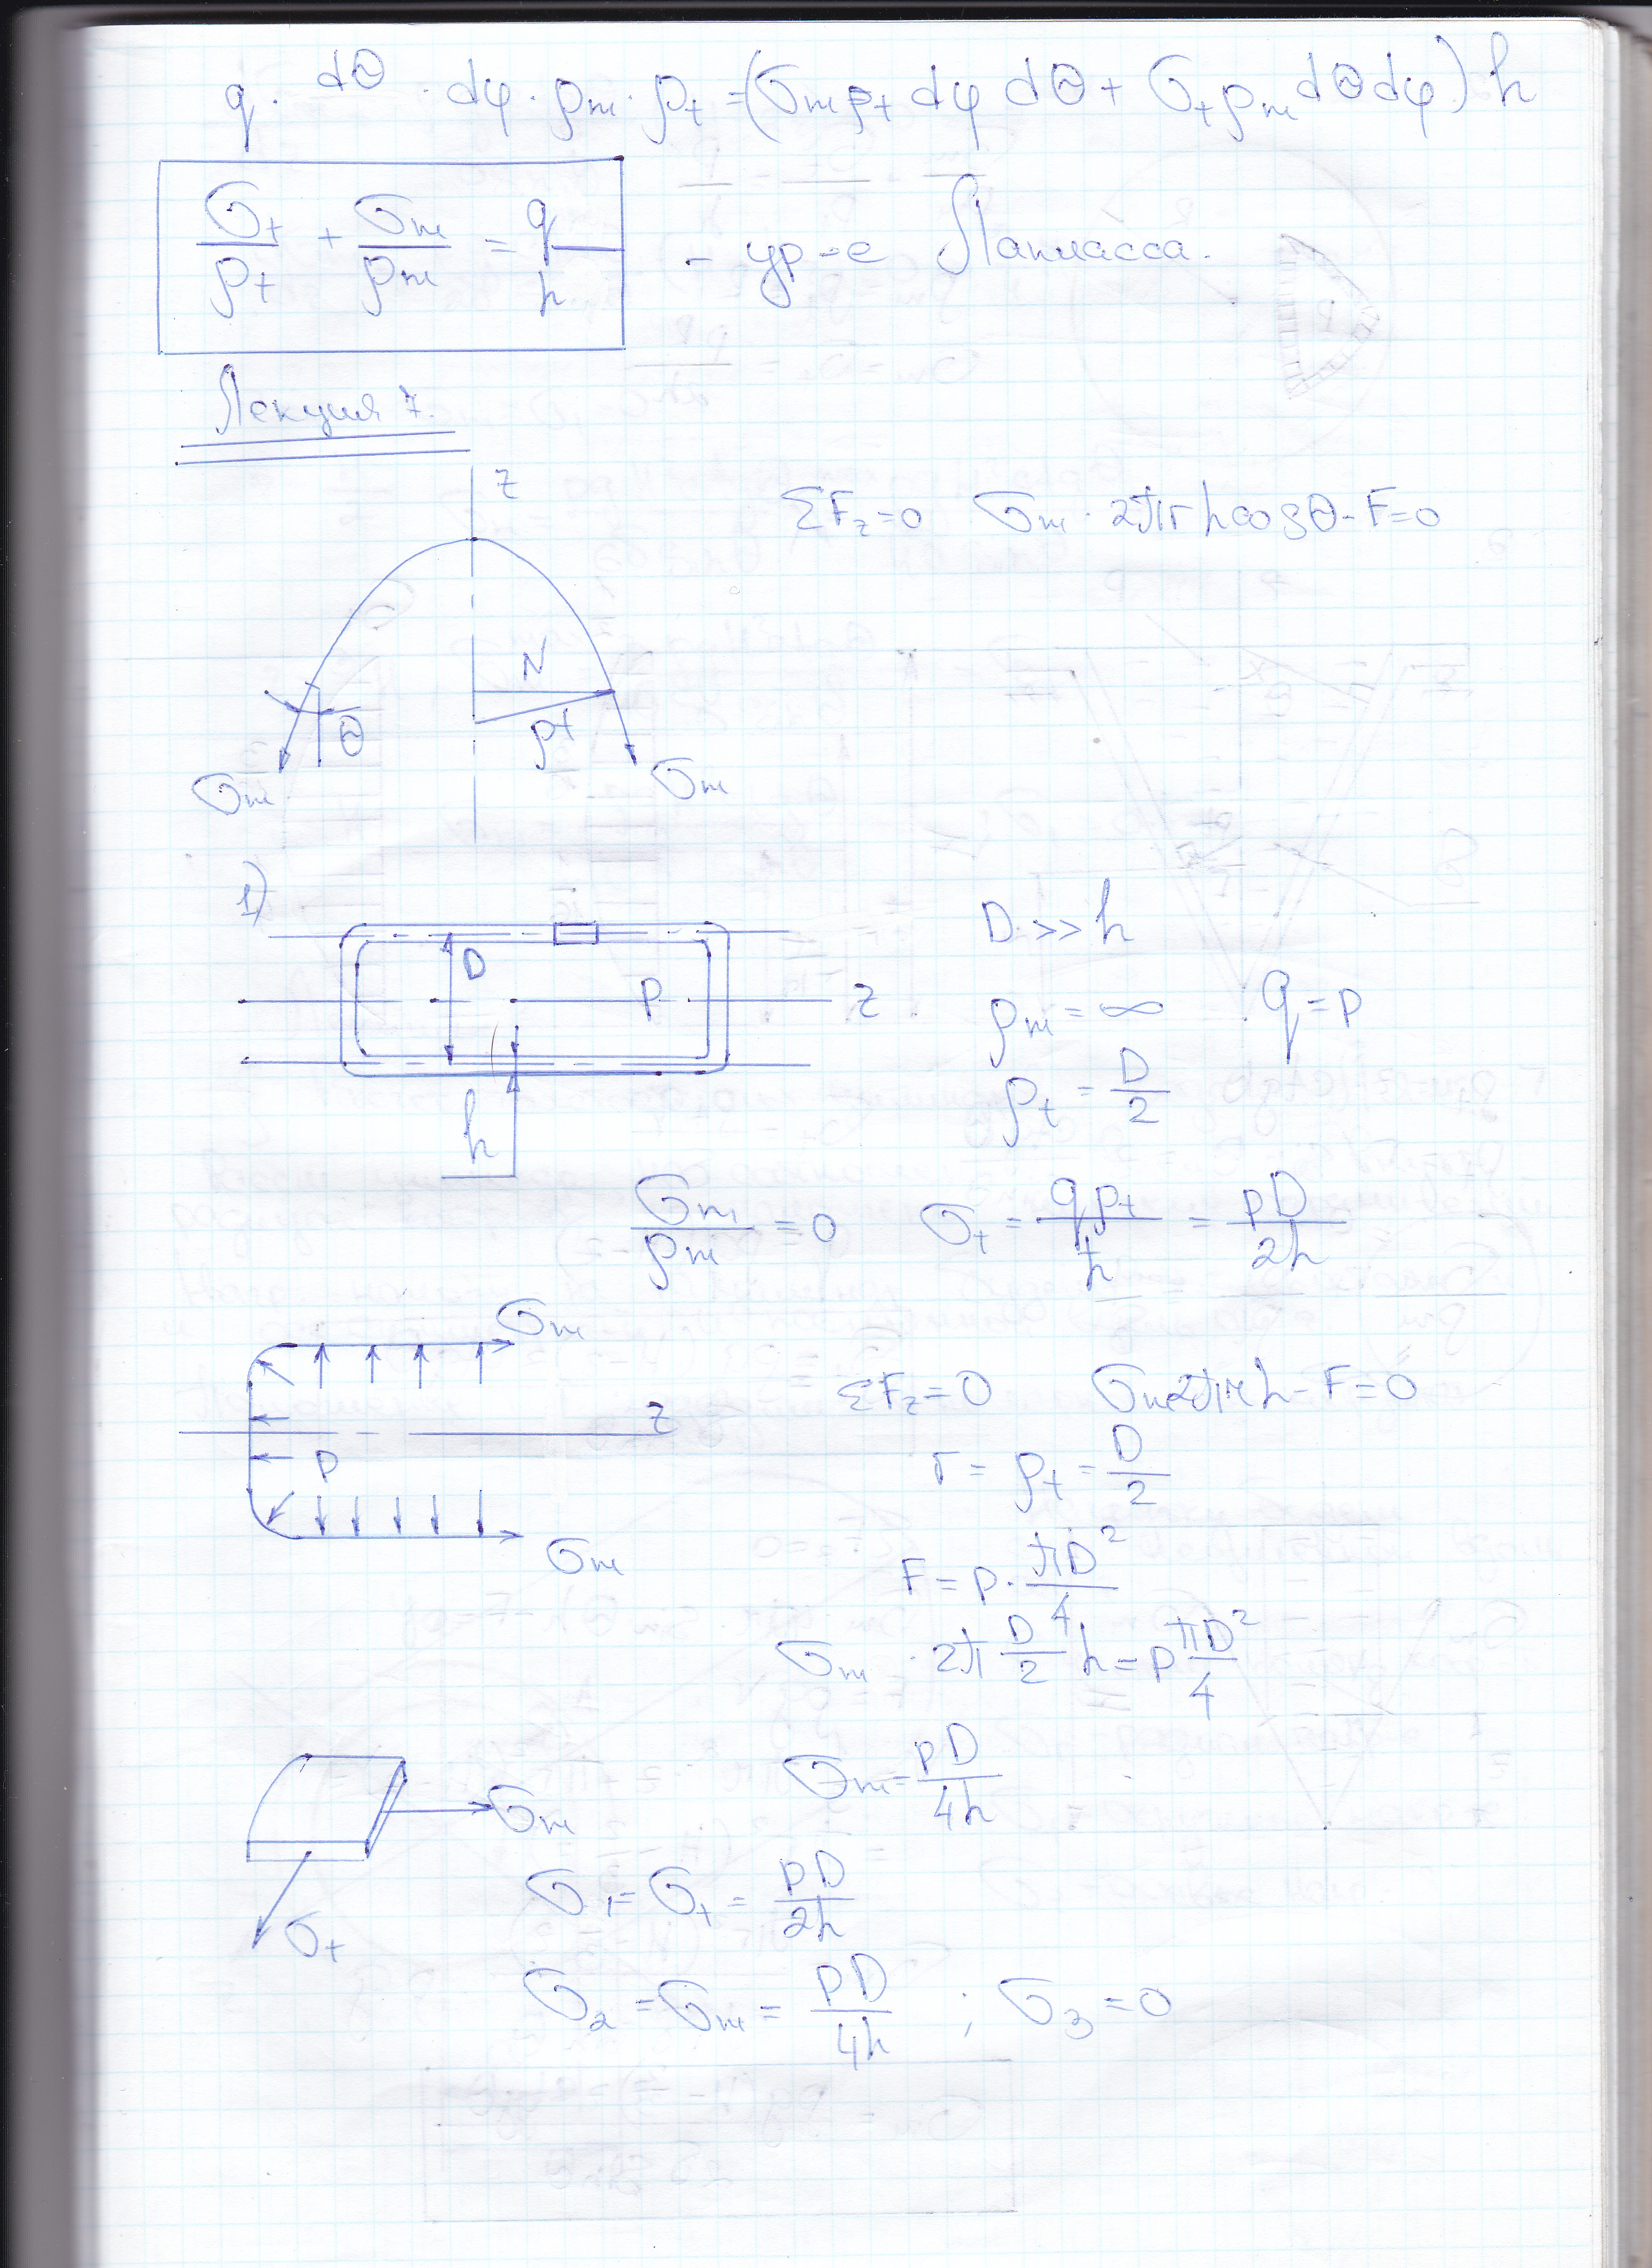 q · dθ · dφ · ρm · ρt = (σm ρt dφ dθ + σt ρm dθ dφ) h
σt/ρt + σm/ρm = q/h - ур-е Лапласса.
Лекция 7.
z
ΣFz=0 σm · 2πr h cosθ - F=0
N
θ
ρt
σm σm
1)
D P z
h
D >> h
ρm = ∞ q = p
ρt = D/2
σm/ρm = 0 σt = qρt/h = pD/2h
σm
z
P
σm
ΣFz=0 σm2πrh - F=0
r = ρt = D/2
F = p · πD²/4
σm · 2π D/2 h = p πD²/4
σm = pD/4h
σm
σt
σ1 = σt = pD/2h
σ2 = σm = pD/4h ; σ3 = 0